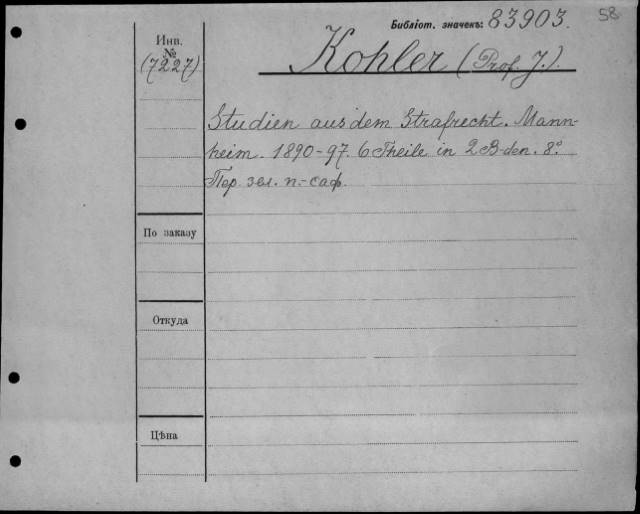 58
Библіот. значекъ: 83903.
Инв.
№
(7227)
Kohler (Prof. J.).
Studien aus dem Strafrecht. Mann-
heim. 1890-97. 6 Theile in 2 B-den. 8º.
Пер. зел. п.-саф.
По заказу
Откуда
Цѣна